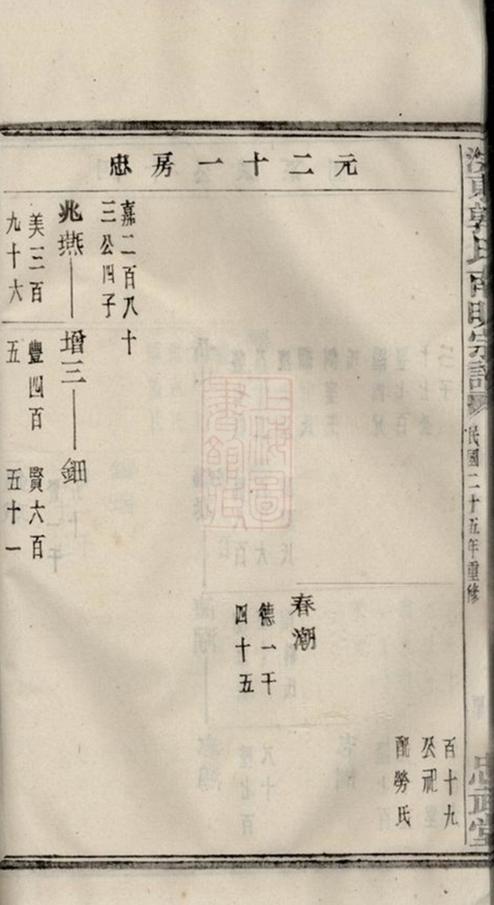 東郭氏南明宗譜
民國二十五年重修
忠武堂
元二十一房忠
百十九
公祀
配勞氏
春潮
德一千
四十五
嘉二百八十
三公四子
兆燕
美三百
九十六
增三
豐四百
五
鈿
賢六百
五十一
上海圖
書館藏